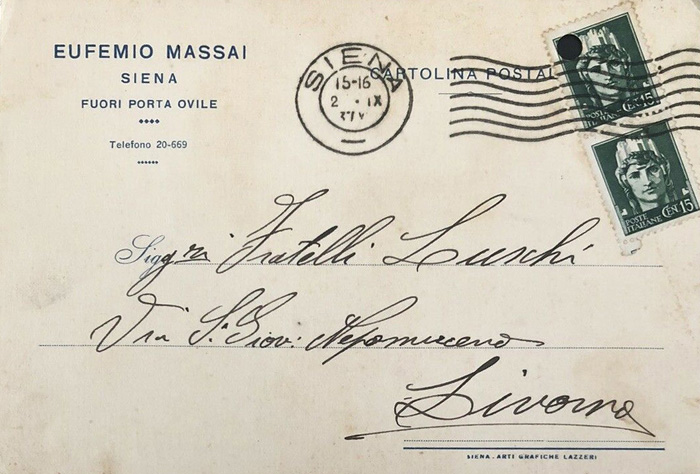 EUFEMIO MASSAI
SIENA
FUORI PORTA OVILE
Telefono 20-669
SIENA
15-16
2 · IX
CARTOLINA POSTAL
POSTE ITALIANE CENT 15
POSTE ITALIANE CENT 15
Siggri Fratelli Luschi
Via S. Giov: Nepomuceno
Livorno
SIENA - ARTI GRAFICHE LAZZERI